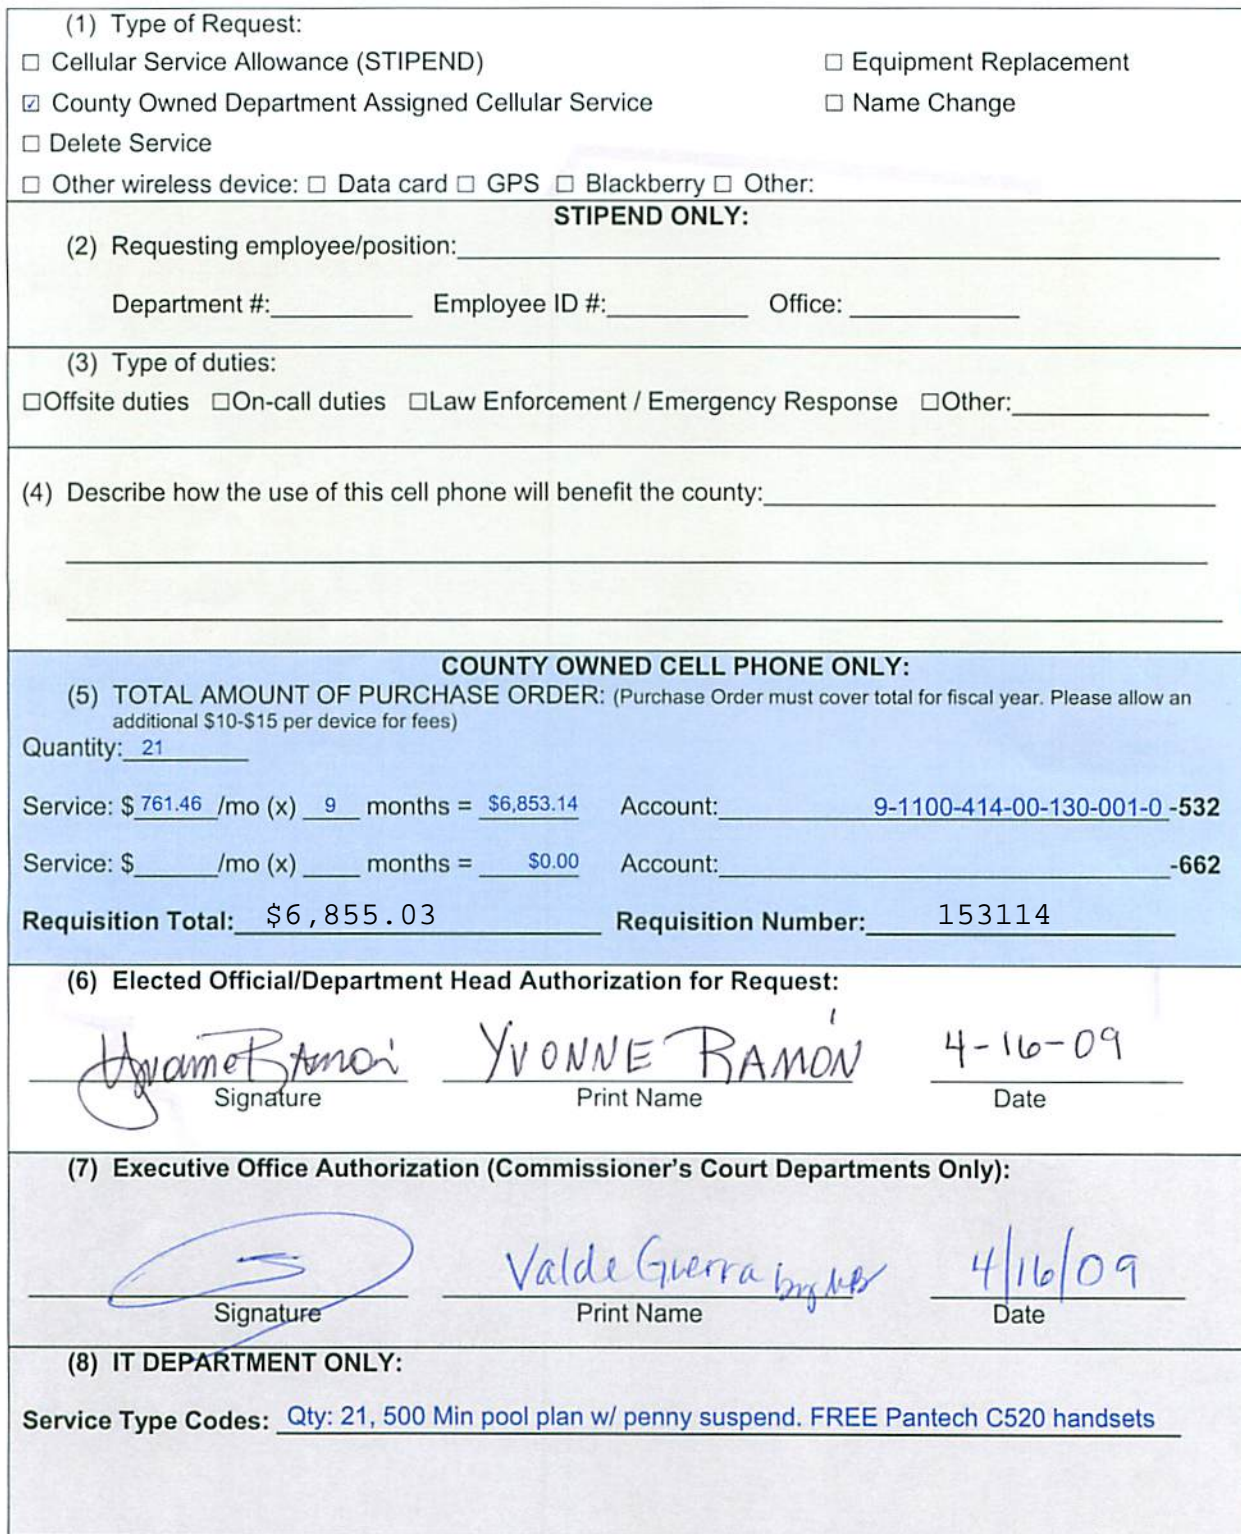 (1) Type of Request:
☐ Cellular Service Allowance (STIPEND) ☐ Equipment Replacement
☑ County Owned Department Assigned Cellular Service ☐ Name Change
☐ Delete Service
☐ Other wireless device: ☐ Data card ☐ GPS ☐ Blackberry ☐ Other:
STIPEND ONLY:
(2) Requesting employee/position:
Department #: Employee ID #: Office:
(3) Type of duties:
☐Offsite duties ☐On-call duties ☐Law Enforcement / Emergency Response ☐Other:
(4) Describe how the use of this cell phone will benefit the county:
COUNTY OWNED CELL PHONE ONLY:
(5) TOTAL AMOUNT OF PURCHASE ORDER: (Purchase Order must cover total for fiscal year. Please allow an
additional $10-$15 per device for fees)
Quantity: 21
Service: $ 761.46 /mo (x) 9 months = $6,853.14 Account: 9-1100-414-00-130-001-0 -532
Service: $ /mo (x) months = $0.00 Account: -662
Requisition Total: $6,855.03 Requisition Number: 153114
(6) Elected Official/Department Head Authorization for Request:
Yvonne Ramón YVONNE RAMÓN 4-16-09
Signature Print Name Date
(7) Executive Office Authorization (Commissioner's Court Departments Only):
Valde Guerra by 4/16/09
Signature Print Name Date
(8) IT DEPARTMENT ONLY:
Service Type Codes: Qty: 21, 500 Min pool plan w/ penny suspend. FREE Pantech C520 handsets